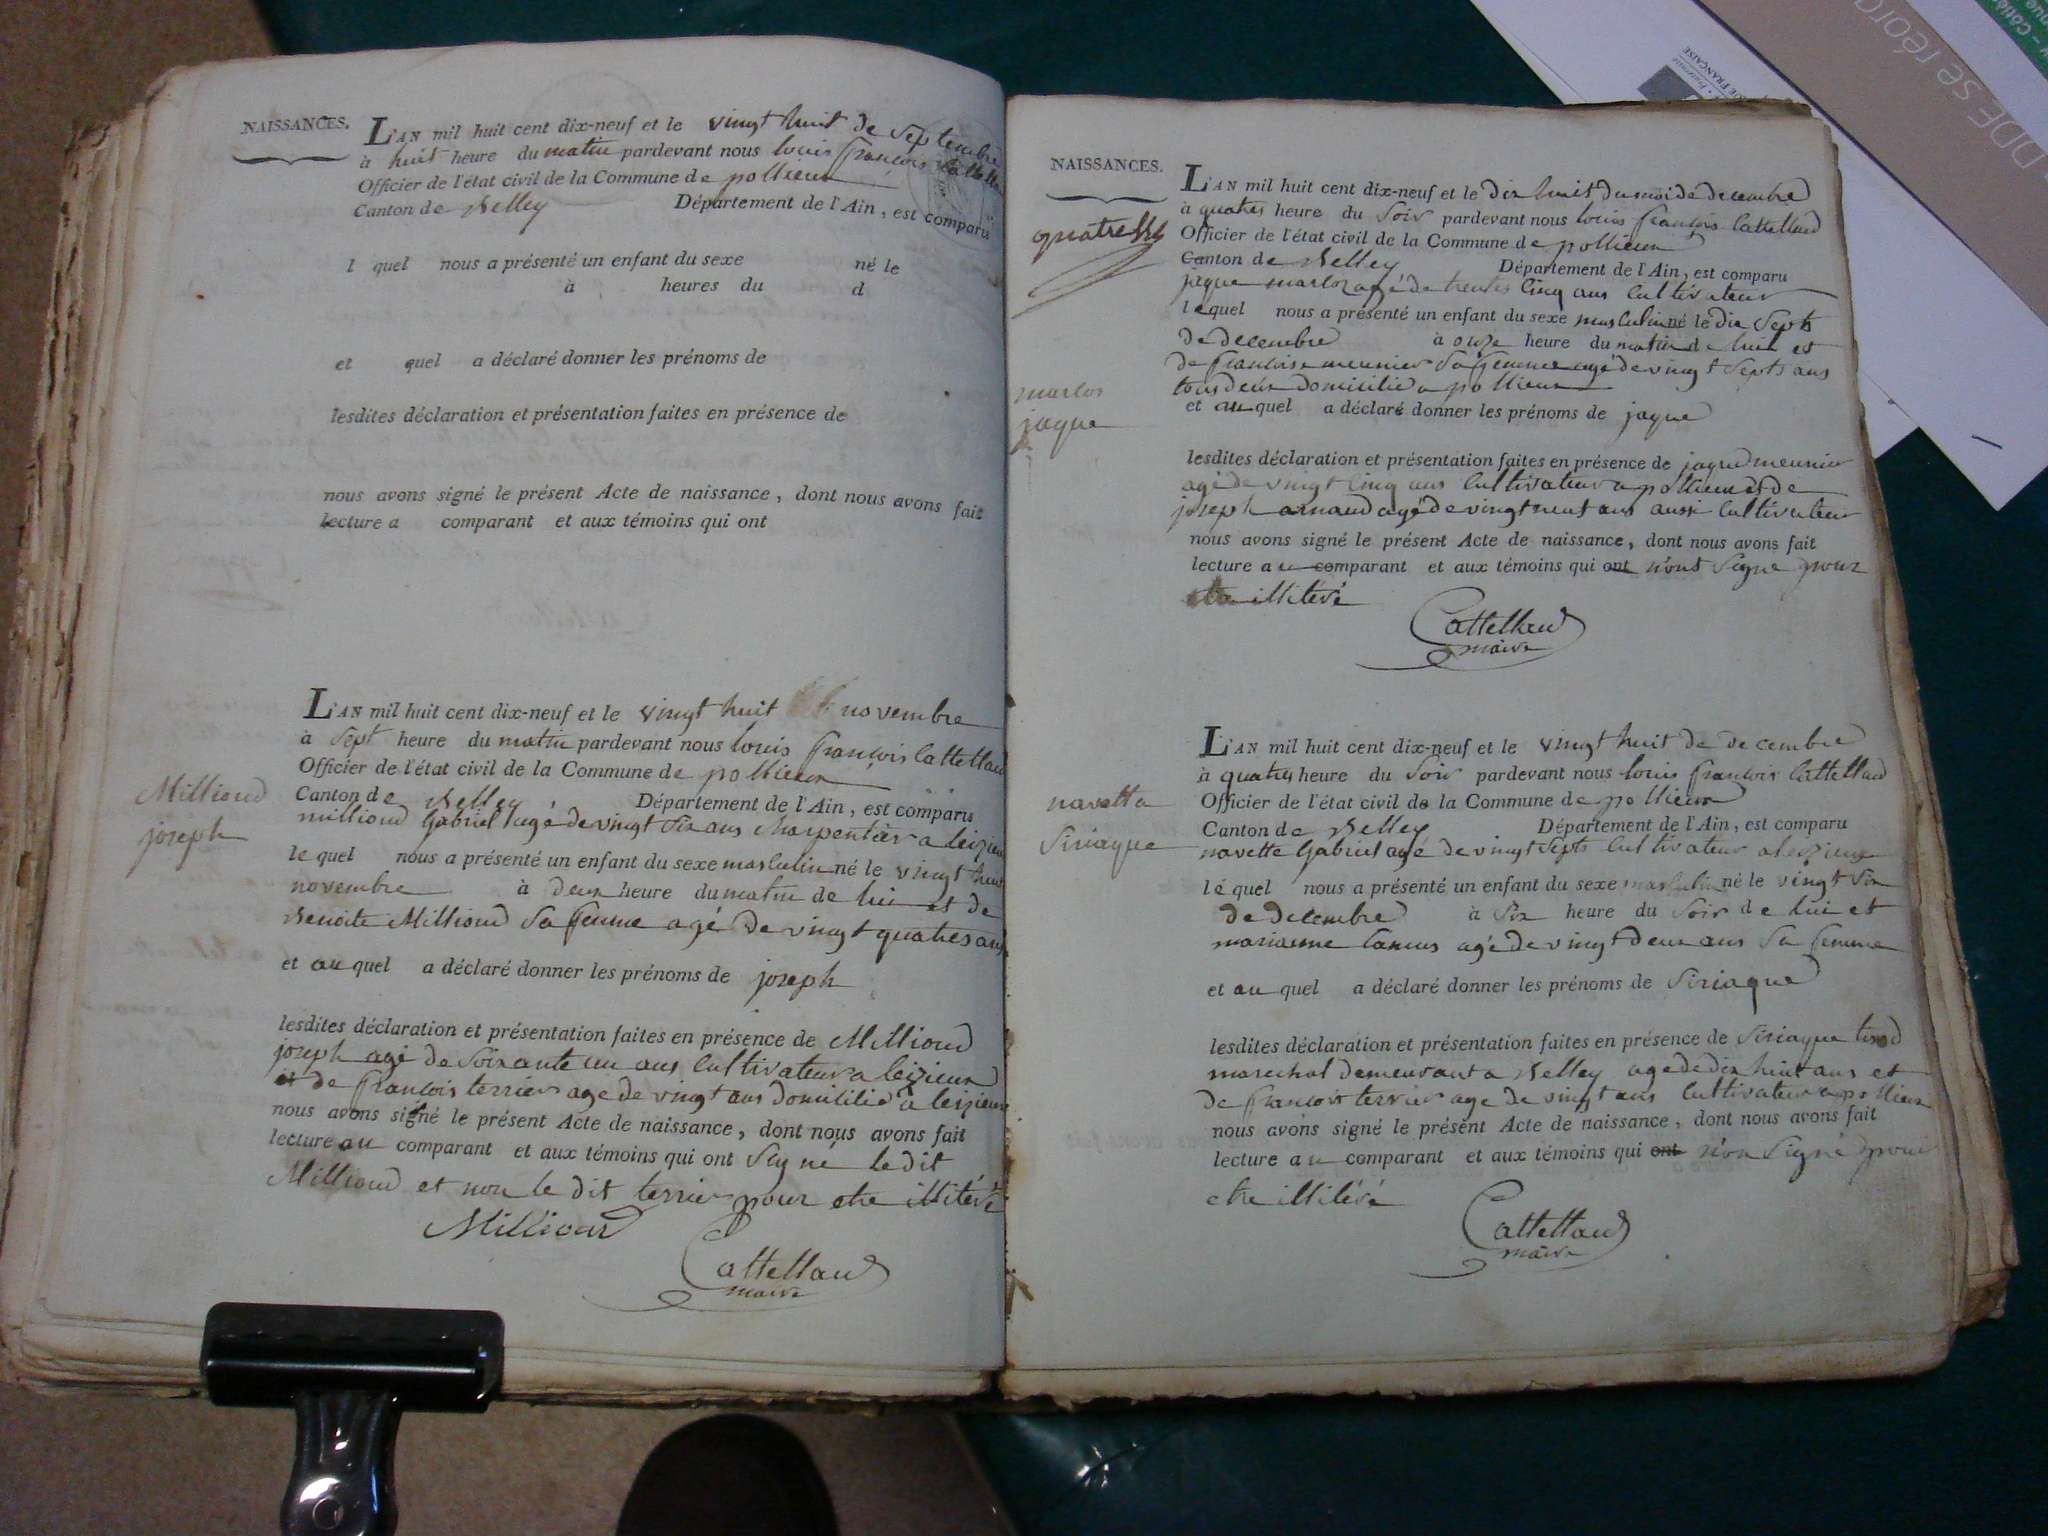 NAISSANCES.
L'AN mil huit cent dix-neuf et le vingt huit de septembre
à huit heure du matin pardevant nous louis françois
Officier de l'état civil de la Commune de pollieux
Canton de Belley Département de l'Ain, est comparu
l quel nous a présenté un enfant du sexe né le
à heures du d
et quel a déclaré donner les prénoms de
lesdites déclaration et présentation faites en présence de
nous avons signé le présent Acte de naissance, dont nous avons fait
lecture a comparant et aux témoins qui ont
Millioud
joseph
L'AN mil huit cent dix-neuf et le vingt huit novembre
à sept heure du matin pardevant nous louis françois Cattelland
Officier de l'état civil de la Commune de pollieux
Canton de Belley Département de l'Ain, est comparu
millioud Gabriel agé de vingt six ans Charpentier a leizieu
le quel nous a présenté un enfant du sexe masculin né le vingt huit
novembre à deux heure du matin de lui et de
Benoite Millioud sa femme agé de vingt quatres ans
et au quel a déclaré donner les prénoms de joseph
lesdites déclaration et présentation faites en présence de Millioud
joseph agé de soixante un ans Cultivateur a leizieux
et de françois terrier age de vingt ans domicilié a leizieux
nous avons signé le présent Acte de naissance, dont nous avons fait
lecture au comparant et aux témoins qui ont signé le dit
Millioud et non le dit terrier pour etre illitéré
Millioud
Cattellaud
maire
NAISSANCES.
quatre
marlos
jaque
L'AN mil huit cent dix-neuf et le dix huit du moi de decembre
à quatres heure du soir pardevant nous louis françois Cattelland
Officier de l'état civil de la Commune de pollieux
Canton de Belley Département de l'Ain, est comparu
jaque marloz agé de trentes cinq ans Cultivateur
le quel nous a présenté un enfant du sexe masculin né le dix septs
de decembre à onze heure du matin de lui et
de francoise meunier sa femme agé de vingt septs ans
tous deux domicilié a pollieux
et au quel a déclaré donner les prénoms de jaque
lesdites déclaration et présentation faites en présence de jaque meunier
agé de vingt cinq ans Cultivateur a pollieux et de
joseph arnaud agé de vingt neuf ans aussi Cultivateur
nous avons signé le présent Acte de naissance, dont nous avons fait
lecture au comparant et aux témoins qui ont n'ont signe pour
etre illitéré
Cattelland
maire
navette
Siriaque
L'AN mil huit cent dix-neuf et le vingt huit de decembre
à quatres heure du soir pardevant nous louis françois Cattelland
Officier de l'état civil de la Commune de pollieux
Canton de Belley Département de l'Ain, est comparu
navette Gabriel agé de vingt septs Cultivateur a leizieux
le quel nous a présenté un enfant du sexe masculin né le vingt six
de decembre à six heure du soir de lui et
marianne Camus agé de vingt deux ans sa femme
et au quel a déclaré donner les prénoms de Siriaque
lesdites déclaration et présentation faites en présence de Siriaque
marechal demeurant a Belley age de dix huit ans et
de françois terrier age de vingt ans Cultivateur a pollieux
nous avons signé le présent Acte de naissance, dont nous avons fait
lecture au comparant et aux témoins qui ont n'on signé pour
etre illiléré
Cattelland
maire
DDE se réorg